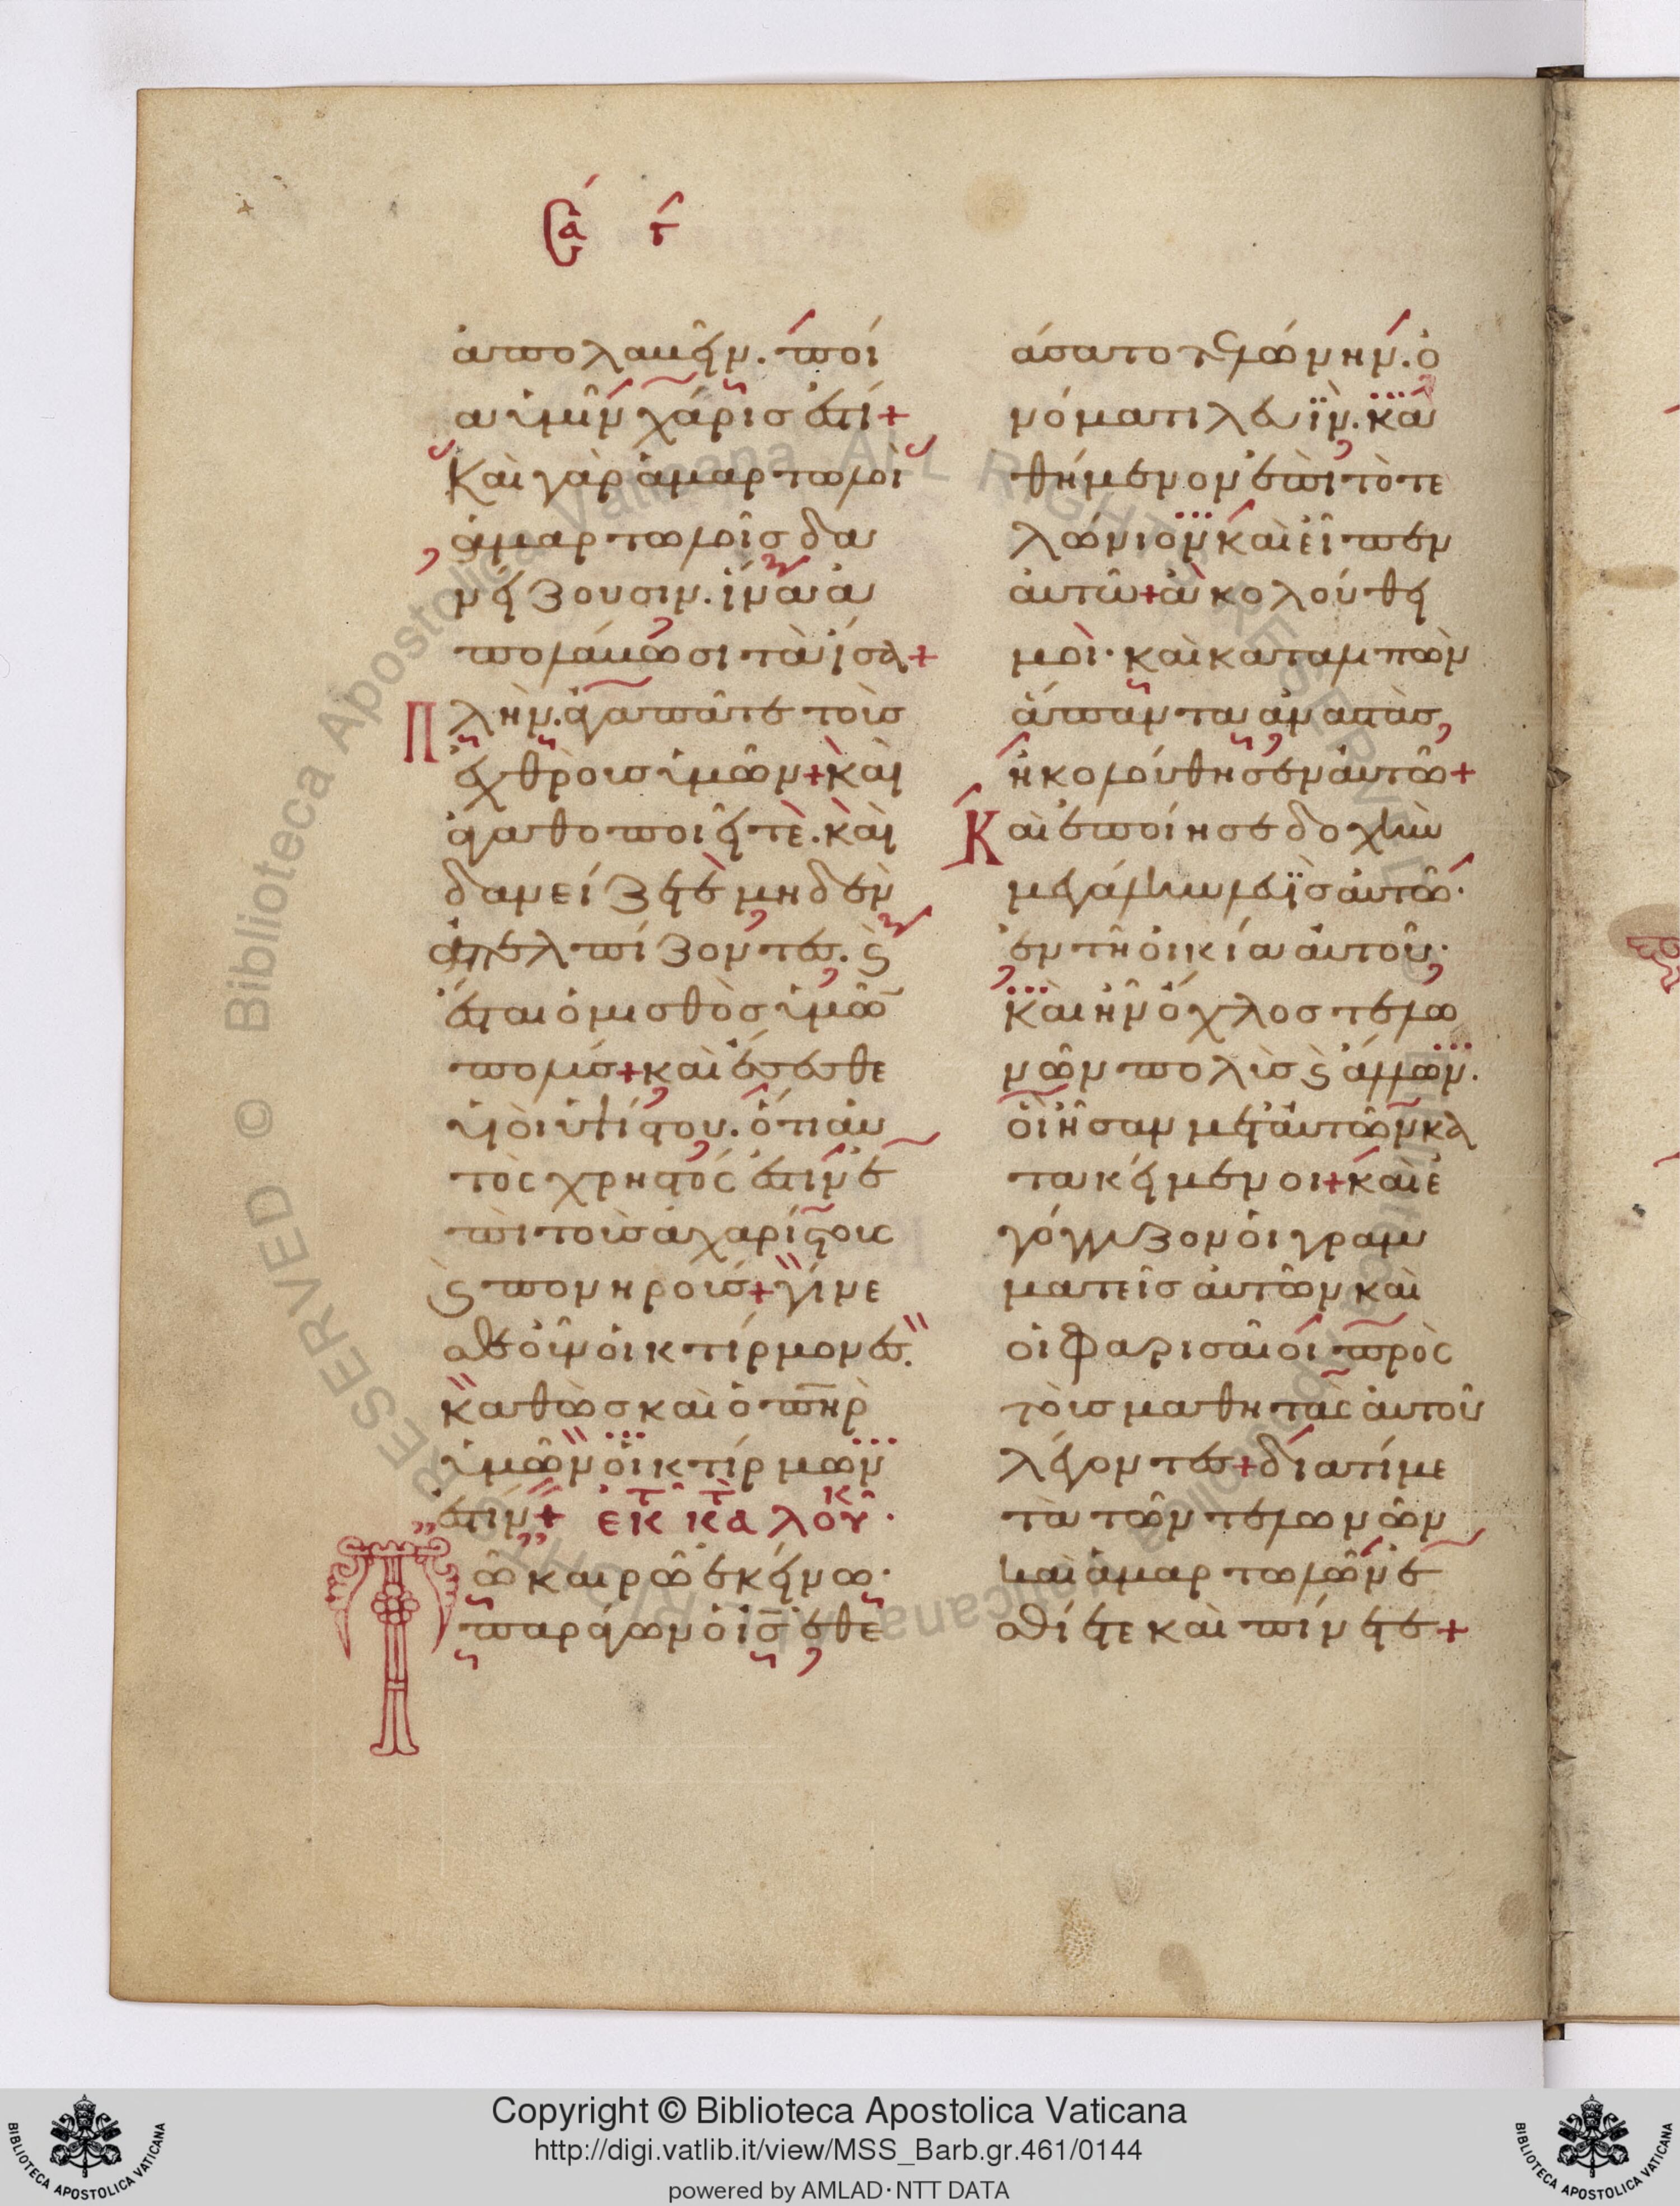 Σα γ
ἀπολαυεῖν. ποί
α ὑμῖν χάρις ἐστί+
Καὶ γὰρ ἁμαρτωλοὶ
ἁμαρτωλοῖς δα
νείζουσιν. ἵνα ἀ
πολάυωσι τὰ ἴσα+
Πλὴν. ἀγαπᾶτε τοὺς
ἐχθροὺς ὑμῶν+ καὶ
ἀγαθοποιεῖτὲ. καὶ
δανείζετε μηδὲν
ἀπελπίζοντες. ϛ
ἔσται ὁ μισθὸς ὑμῶ̅
πολύς+ καὶ ἔσεσθε
υἱοὶ ὑψίστου. ὅτι ἀυ
τὸς χρηστός ἐστὶν ἐ
πὶ τοὺς ἀχαρίστους
ϛ πονηρούς+ γίνε
σθε οὖν οἰκτίρμονες.
καθὼς καὶ ὁ π̅η̅ρ̅
ὑμῶν οἰκτίρμων
ἐστίν+ ἐκ τ̅ κ̅α̅τ̅ λουκ.
Τῶ καιρῶ ἐκείνω.
παράγων ὁ ι̅ς̅ ἐθε
άσατο τελώνην. ὀ
νόματι λευϊν. κα
θήμενον ἐπὶ τὸ τε
λώνιον καὶ εἶπεν
ἀυτῶ+ ἀκολούθει
μοὶ. καὶ καταλιπὼν
ἅπαντα ἀναστὰς
ἠκολούθησεν ἀυτῶ+
Καὶ ἐποίησε δοχὴν
μεγάλην λευῒς ἀυτῶ.
ἐν τῆ οἰκία ἀυτοῦ.
καὶ ἦν ὄχλος τελω
νῶν πολὺς ϛ ἄλλων.
οἳ ἦσαν μετ᾽ ἀυτῶν κα
τακείμενοι+ καὶ ἐ
γόγγυζον οἱ γραμ
ματεῖς ἀυτῶν καὶ
οἱ φαρισαῖοι πρὸς
τοὺς μαθητὰς ἀυτοῦ
λέγοντες+ διατί με
τὰ τῶν τελωνῶν
καὶ ἁμαρτωλῶν ἐ
σθίετε καὶ πίνετε+
Copyright © Biblioteca Apostolica Vaticana
http://digi.vatlib.it/view/MSS_Barb.gr.461/0144
powered by AMLAD·NTT DATA
BIBLIOTECA APOSTOLICA VATICANA
BIBLIOTECA APOSTOLICA VATICANA